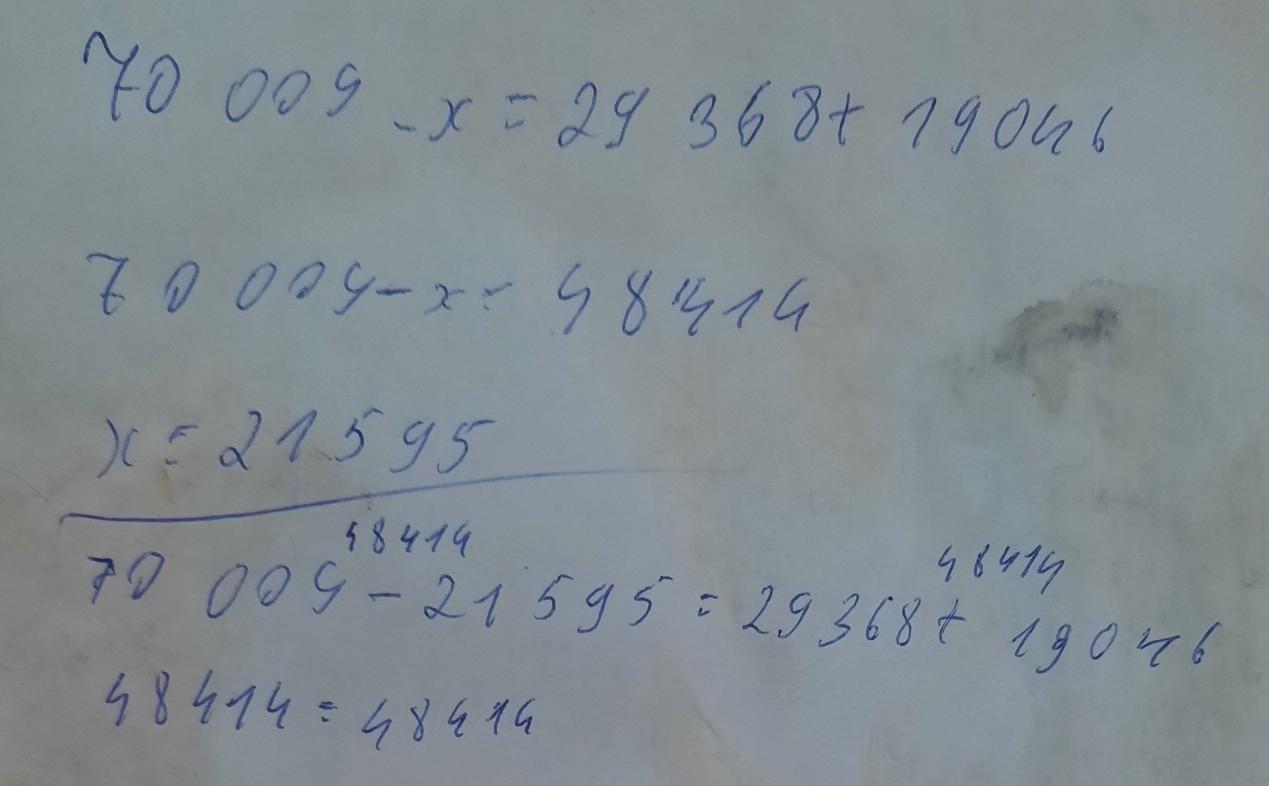 70 009 - x = 29 368 + 19046
70 009 - x = 48414
x = 21595
48414 48414
70 009 - 21595 = 29368 + 19046
48414 = 48414